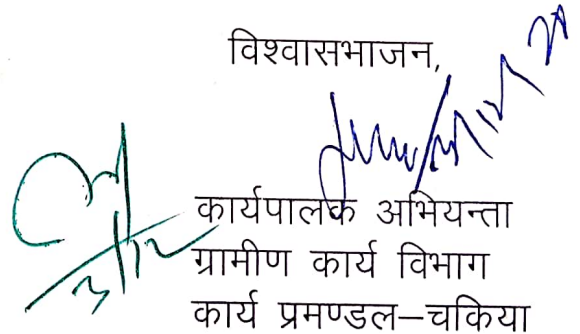 विश्वासभाजन,
कार्यपालक अभियन्ता
ग्रामीण कार्य विभाग
कार्य प्रमण्डल–चकिया